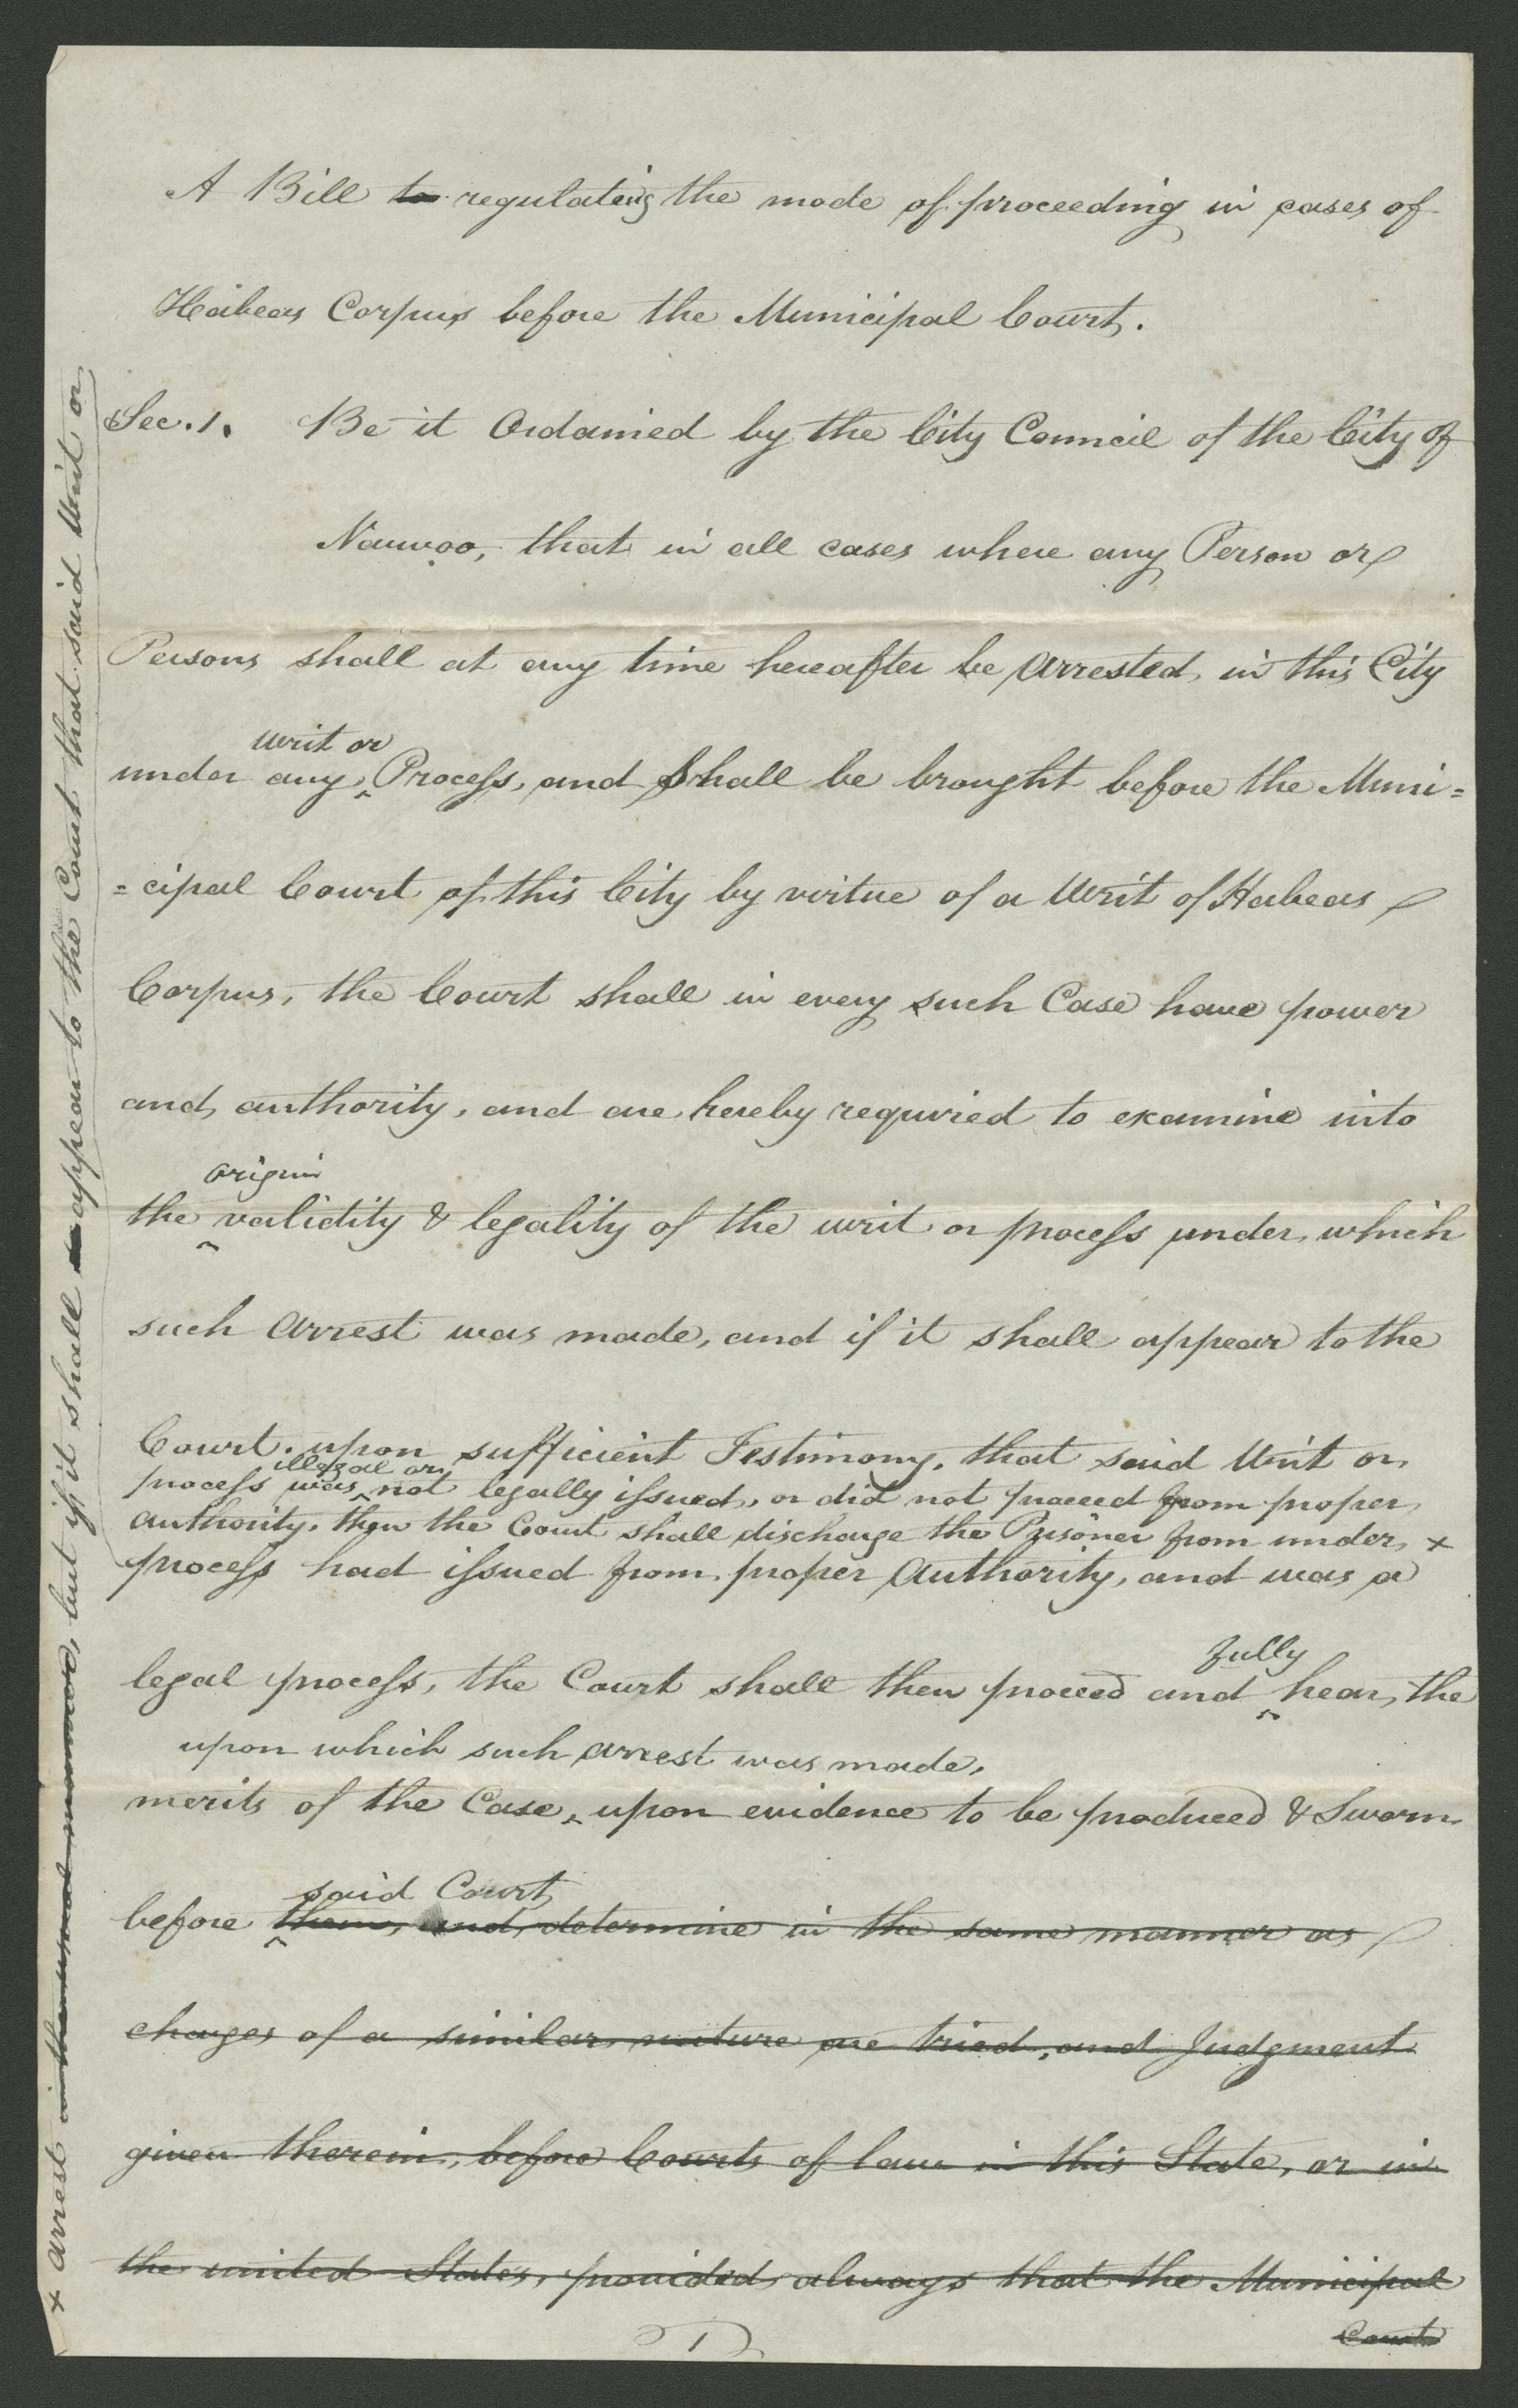 A Bill to regulateing the mode of proceeding in cases of
Habeas Corpus before the Municipal Court.
Sec. 1. Be it Ordained by the City Council of the City of
Nauvoo, that in all cases where any Person or
Persons shall at any time hereafter be Arrested in this City
writ or
under any ^ Process, and Shall be brought before the Muni=
=cipal Court of this City by virtue of a Writ of Habeas
Corpus, the Court shall in every such Case have power
and authority, and are hereby requried to examine into
origin
the ^ validity & legality of the writ or process under which
such Arrest was made, and if it shall appear to the
Court. upon sufficient Testimony, that said Writ or
illegal or
process was ^ not legally issued, or did not proceed from proper
authority. then the Court shall discharge the Prisoner from under +
+ arrest, but if it shall appear to the Court that said Writ or
process had issued from proper Authority, and was a
fully
legal process, the Court shall then proceed and ^ hear, the
upon which such arrest was made,
merits of the Case, ^ upon evidence to be produced & Sworn
said Court
before ^ them, and determine in the same manner as
charges of a similar nature are tried, and Judgment
given therein, before Courts of law in this State, or in
the united States, provided always that the Municipal
Court
1